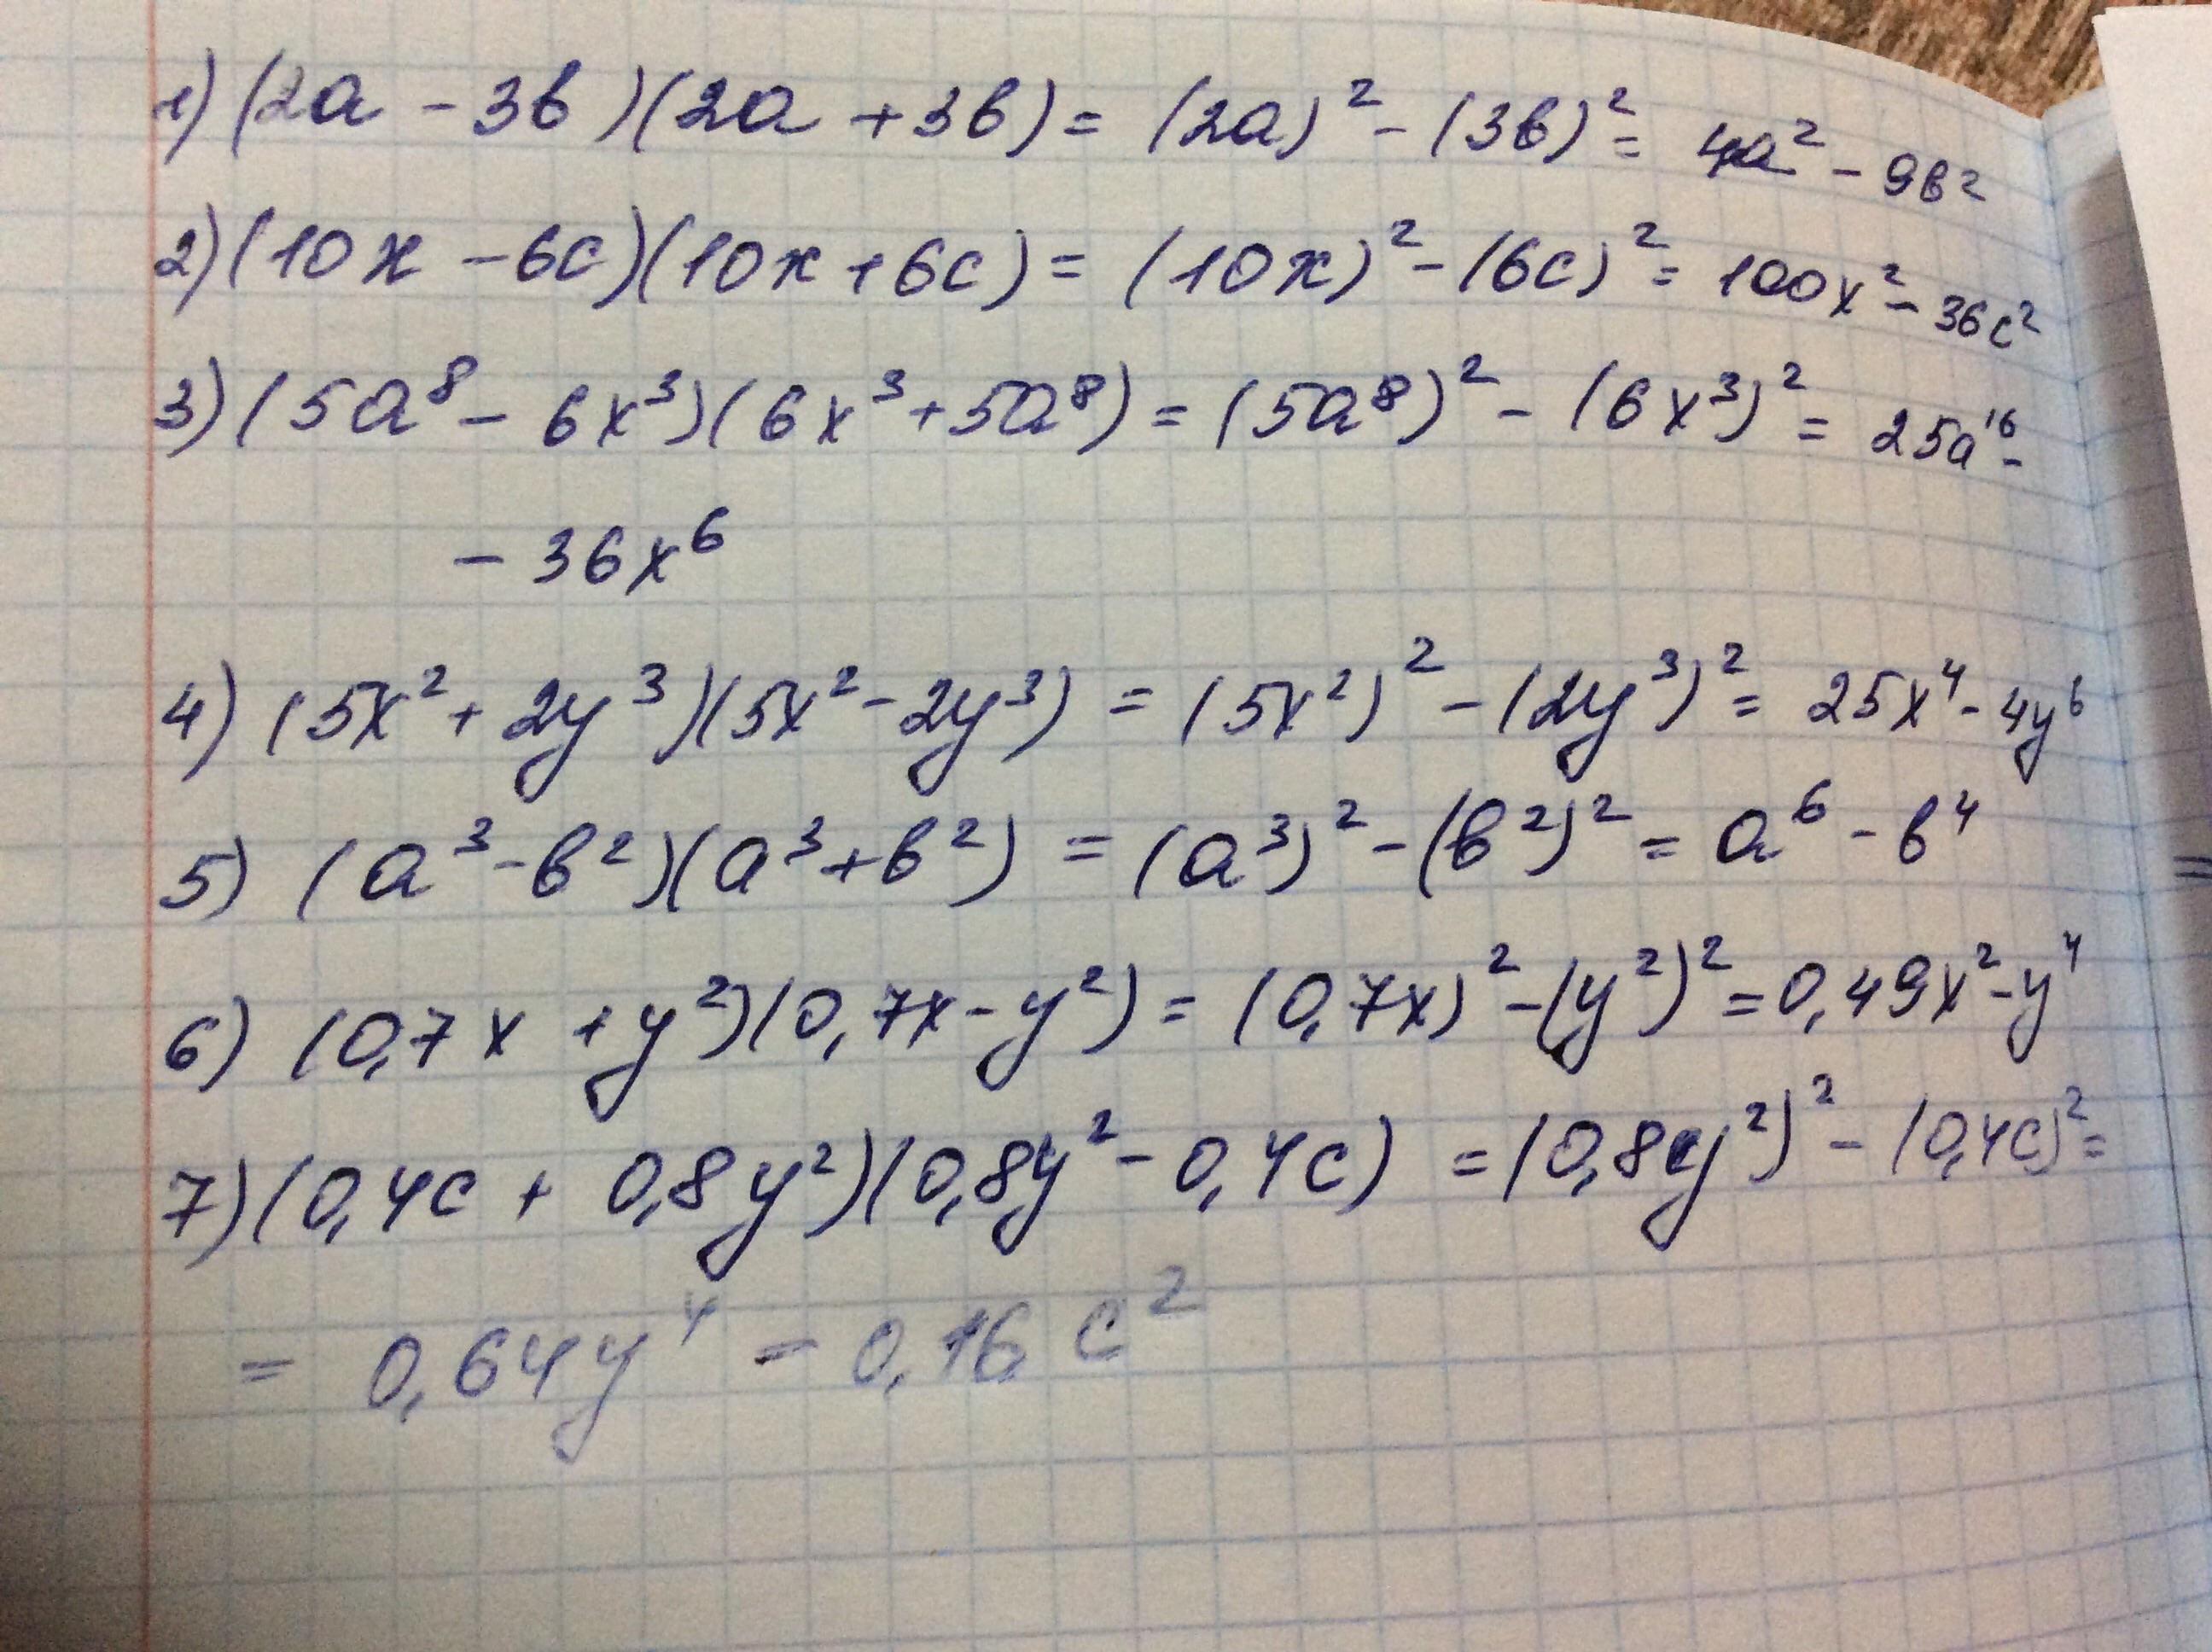 1) (2a - 3b)(2a + 3b) = (2a)² - (3b)² = 4a² - 9b²
2) (10x - 6c)(10x + 6c) = (10x)² - (6c)² = 100x² - 36c²
3) (5a⁸ - 6x³)(6x³ + 5a⁸) = (5a⁸)² - (6x³)² = 25a¹⁶ -
- 36x⁶
4) (5x² + 2y³)(5x² - 2y³) = (5x²)² - (2y³)² = 25x⁴ - 4y⁶
5) (a³ - b²)(a³ + b²) = (a³)² - (b²)² = a⁶ - b⁴
6) (0,7x + y²)(0,7x - y²) = (0,7x)² - (y²)² = 0,49x² - y⁴
7) (0,4c + 0,8y²)(0,8y² - 0,4c) = (0,8y²)² - (0,4c)² =
= 0,64y⁴ - 0,16c²